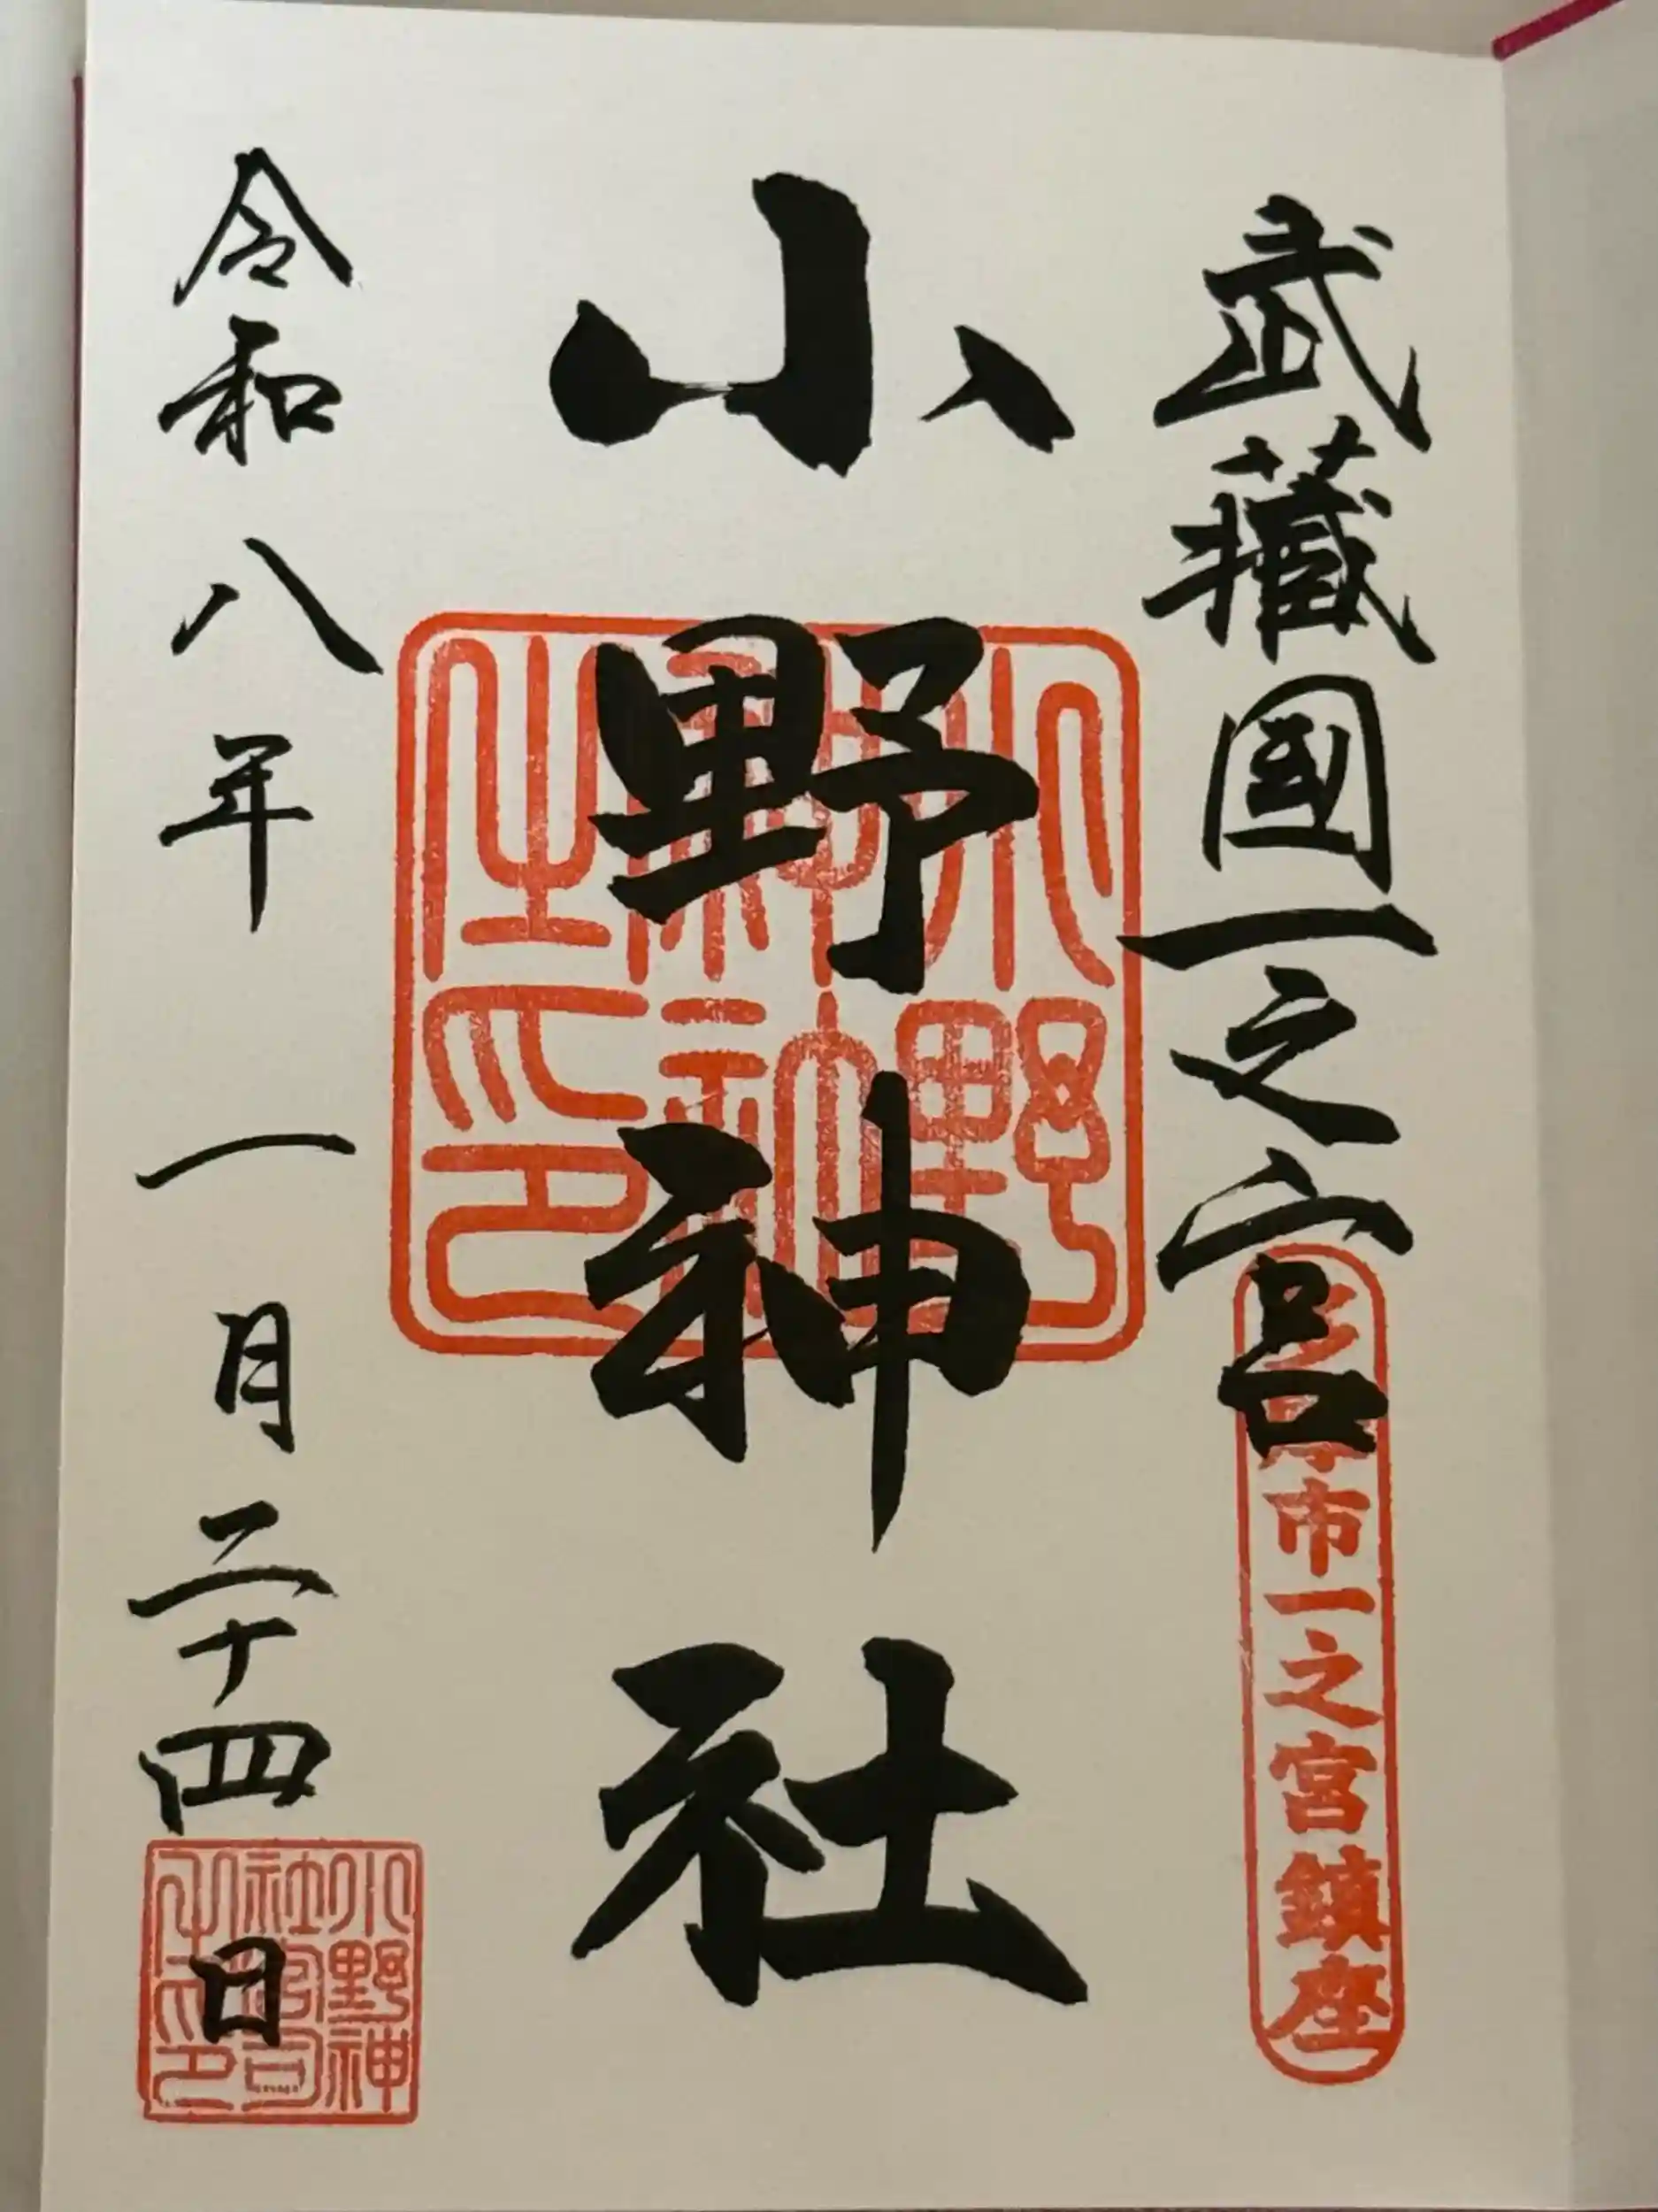 武藏國一之宮
市一之宮鎮座
小野神社
小野神社之印
令和八年一月二十四日
小野神社宮司之印